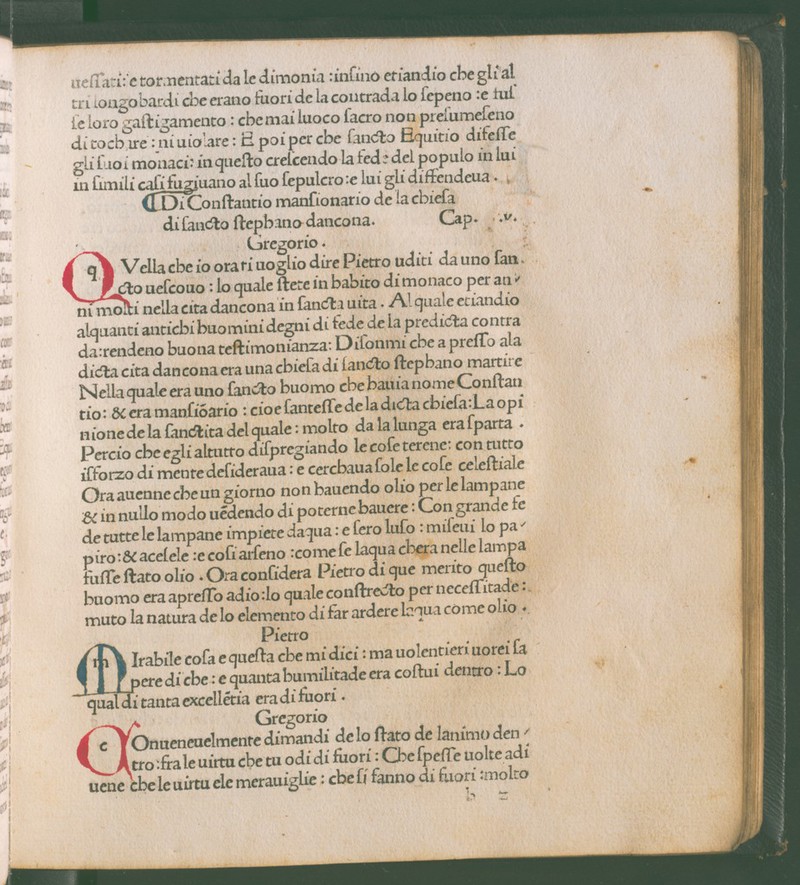 uessati: e tormentati da le dimonia : insino etiandio che gli al
tri longobardi che erano fuori de la contrada lo sepeno : e fuf
se loro gastigamento : che mai luoco sacro non presumeseno
di tochare : ni uiolare : E poi per che sancto Equitio difesse
gli suoi monaci: in questo crescendo la fede del populo in lui
in simili casi fugiuano al suo sepulcro : e lui gli diffendeua .
¶ Di Constantio mansionario de la chiesa
di sancto stephano dancona. Cap. .v.
Gregorio .
QVella che io ora ti uoglio dire Pietro uditi da uno san
cto uescouo : lo quale stete in habito di monaco per an
ni molti nella cita dancona in sancta uita . Al quale etiandio
alquanti antichi huomini degni di fede de la predicta contra
da: rendeno buona testimonianza: Disonmi che a presso ala
dicta cita dancona era una chiesa di sancto stephano martire
Nella quale era uno sancto huomo che hauia nome Constan
tio: & era mansiōario : cioe santesse de la dicta chiesa: La opi
nione de la sanctita del quale : molto da la lunga era sparta .
Percio che egli altutto dispregiando le cose terene: con tutto
isforzo di mente desideraua : e cerchaua sole le cose celestiale
Ora auenne che un giorno non hauendo olio per le lampane
& in nullo modo uēdendo di poterne hauere : Con grande fe
de tutte le lampane impiete daqua : e fero luso : miseui lo pa
piro: & acesele : e cosi arseno : come se laqua chera nelle lampa
fusse stato olio . Ora considera Pietro di que merito questo
huomo era apresso adio: lo quale constrecto per necessitade :
muto la natura de lo elemento di far ardere laqua come olio .
Pietro
MIrabile cosa e questa che mi dici : ma uolentieri uorei sa
pere di che : e quanta humilitade era costui dentro : Lo
qual di tanta excellētia era di fuori .
Gregorio
COnueneuelmente dimandi de lo stato de lanimo den
tro: fra le uirtu che tu odi di fuori : Che spesse uolte adi
uene che le uirtu e le merauiglie : che si fanno di fuori : molto
b 2